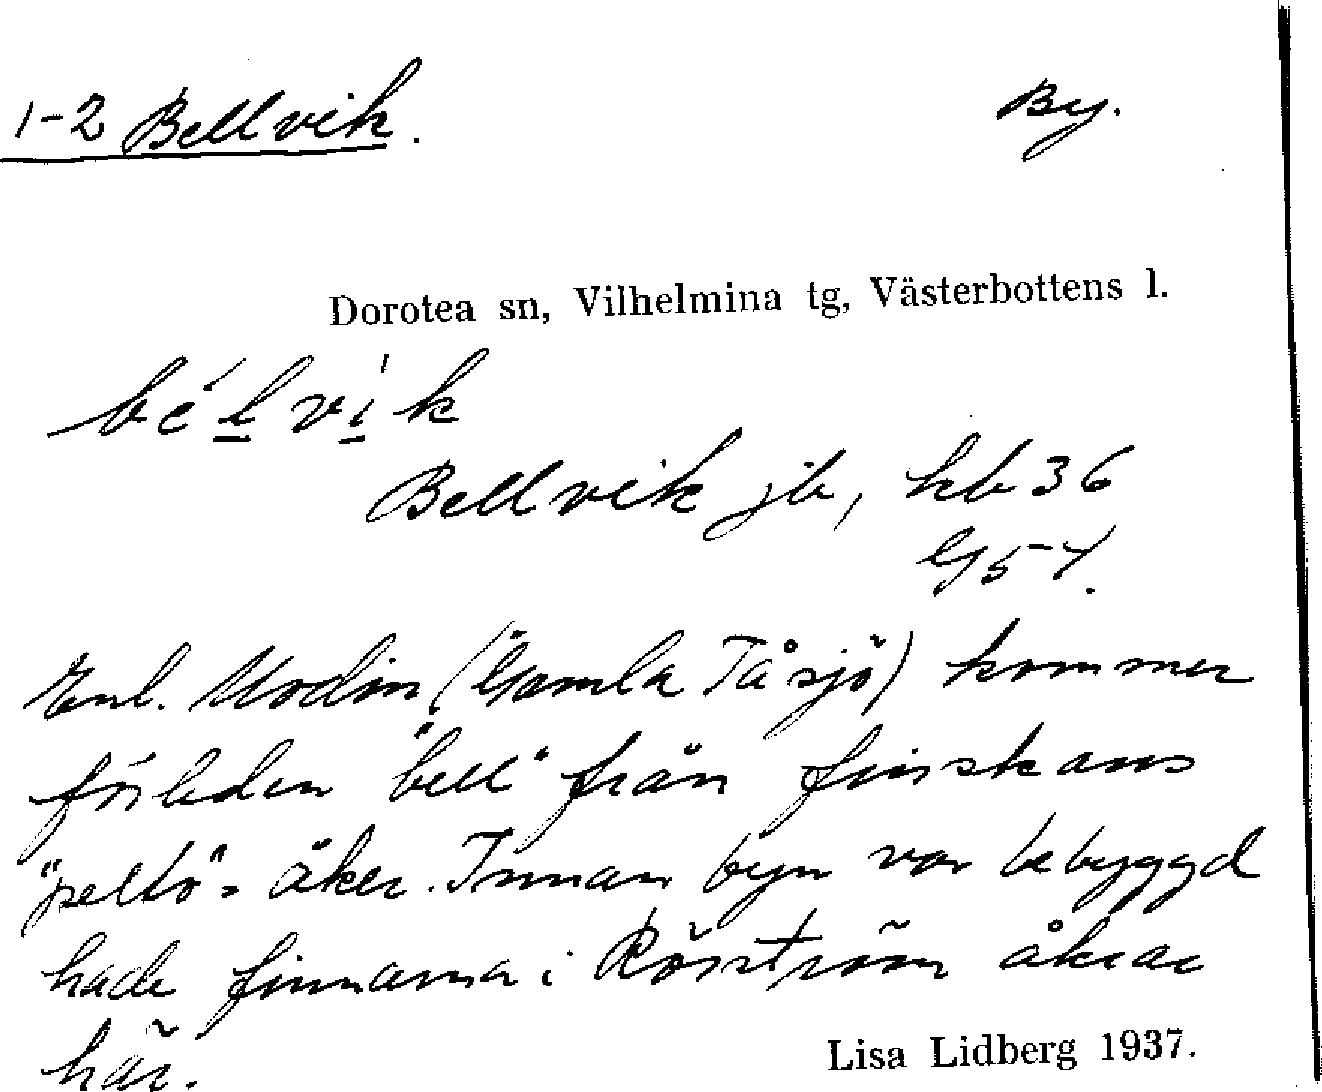 1-2 Bellvik. By.
Dorotea sn, Vilhelmina tg, Västerbottens l.
bélvik
Bellvik jb, kb 36
G 5 Y.
Enl. Modin (Gamla Tåsjö) kommer
förleden "bell" från finskans
"pelto" = åker. Innan byn var bebyggd
hade finnarna i Röström åkrar
här.
Lisa Lidberg 1937.